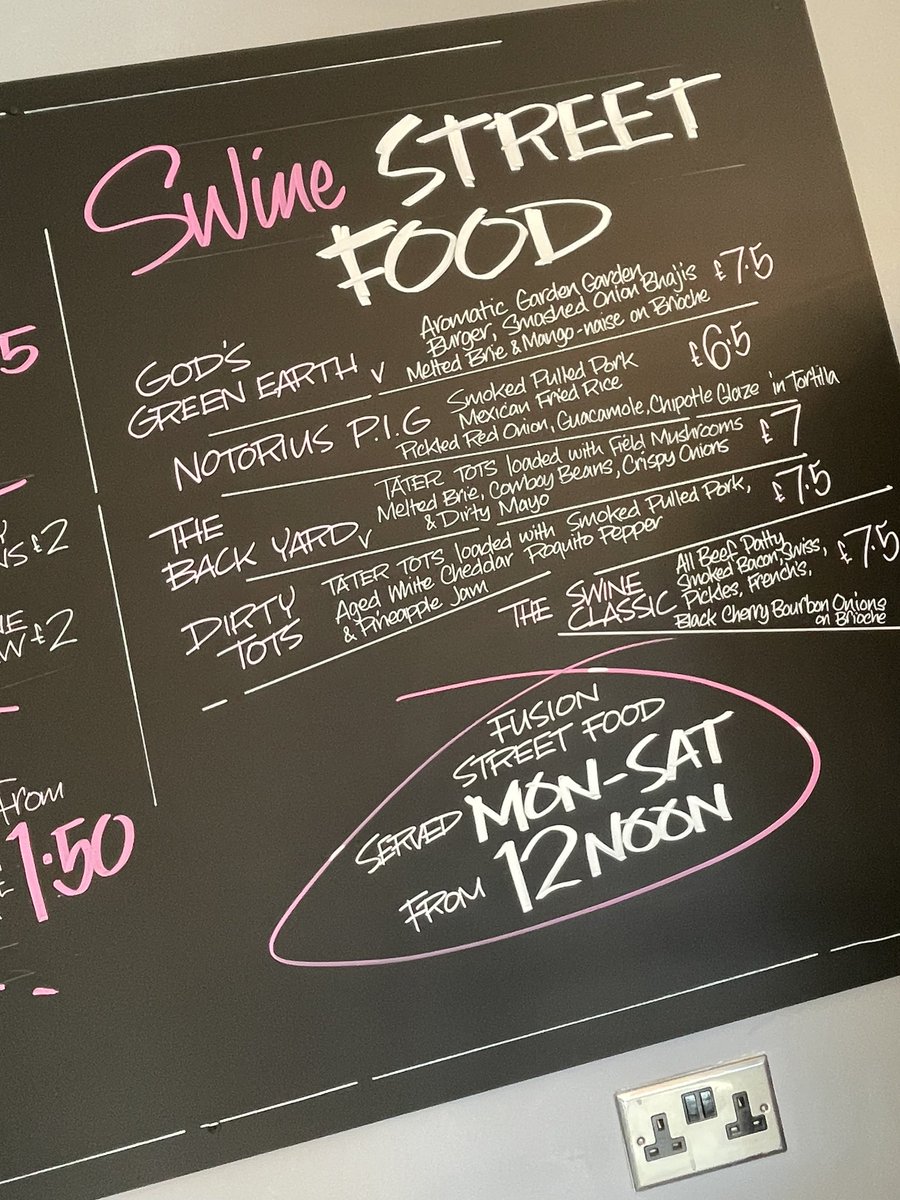 Swine STREET
FOOD
GOD'S
GREEN EARTH V
Aromatic Garden Garden
Burger, Smashed Onion Bhajis
Melted Brie & Mango-naise on Brioche
£7.5
NOTORIUS P.I.G
Smoked Pulled Pork
Mexican Fried Rice
Pickled Red Onion, Guacamole, Chipotle Glaze in Tortilla
£6.5
THE
BACK YARD V
TATER TOTS loaded with Field Mushrooms
Melted Brie, Cowboy Beans, Crispy Onions
& Dirty Mayo
£7
DIRTY
TOTS
TATER TOTS loaded with Smoked Pulled Pork,
Aged White Cheddar Roquito Pepper
& Pineapple Jam
£7.5
THE SWINE
CLASSIC
All Beef Patty
Smoked Bacon, Swiss,
Pickles, French's,
Black Cherry Bourbon Onions
on Brioche
£7.5
FUSION
STREET FOOD
SERVED MON-SAT
FROM 12 NOON
5
£2
£2
From
1.50